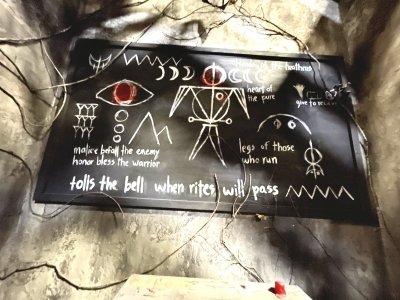 of the heathens
heart of
the pure
give to receive
malice befall the enemy
honor bless the warrior
legs of those
who run
tolls the bell when rites will pass